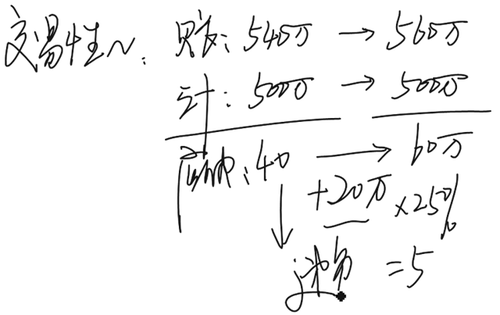 交易性~：账：540万 → 560万
计：500万 → 500万
应纳：40 → 60万
+20万 ×25%
递负 =5